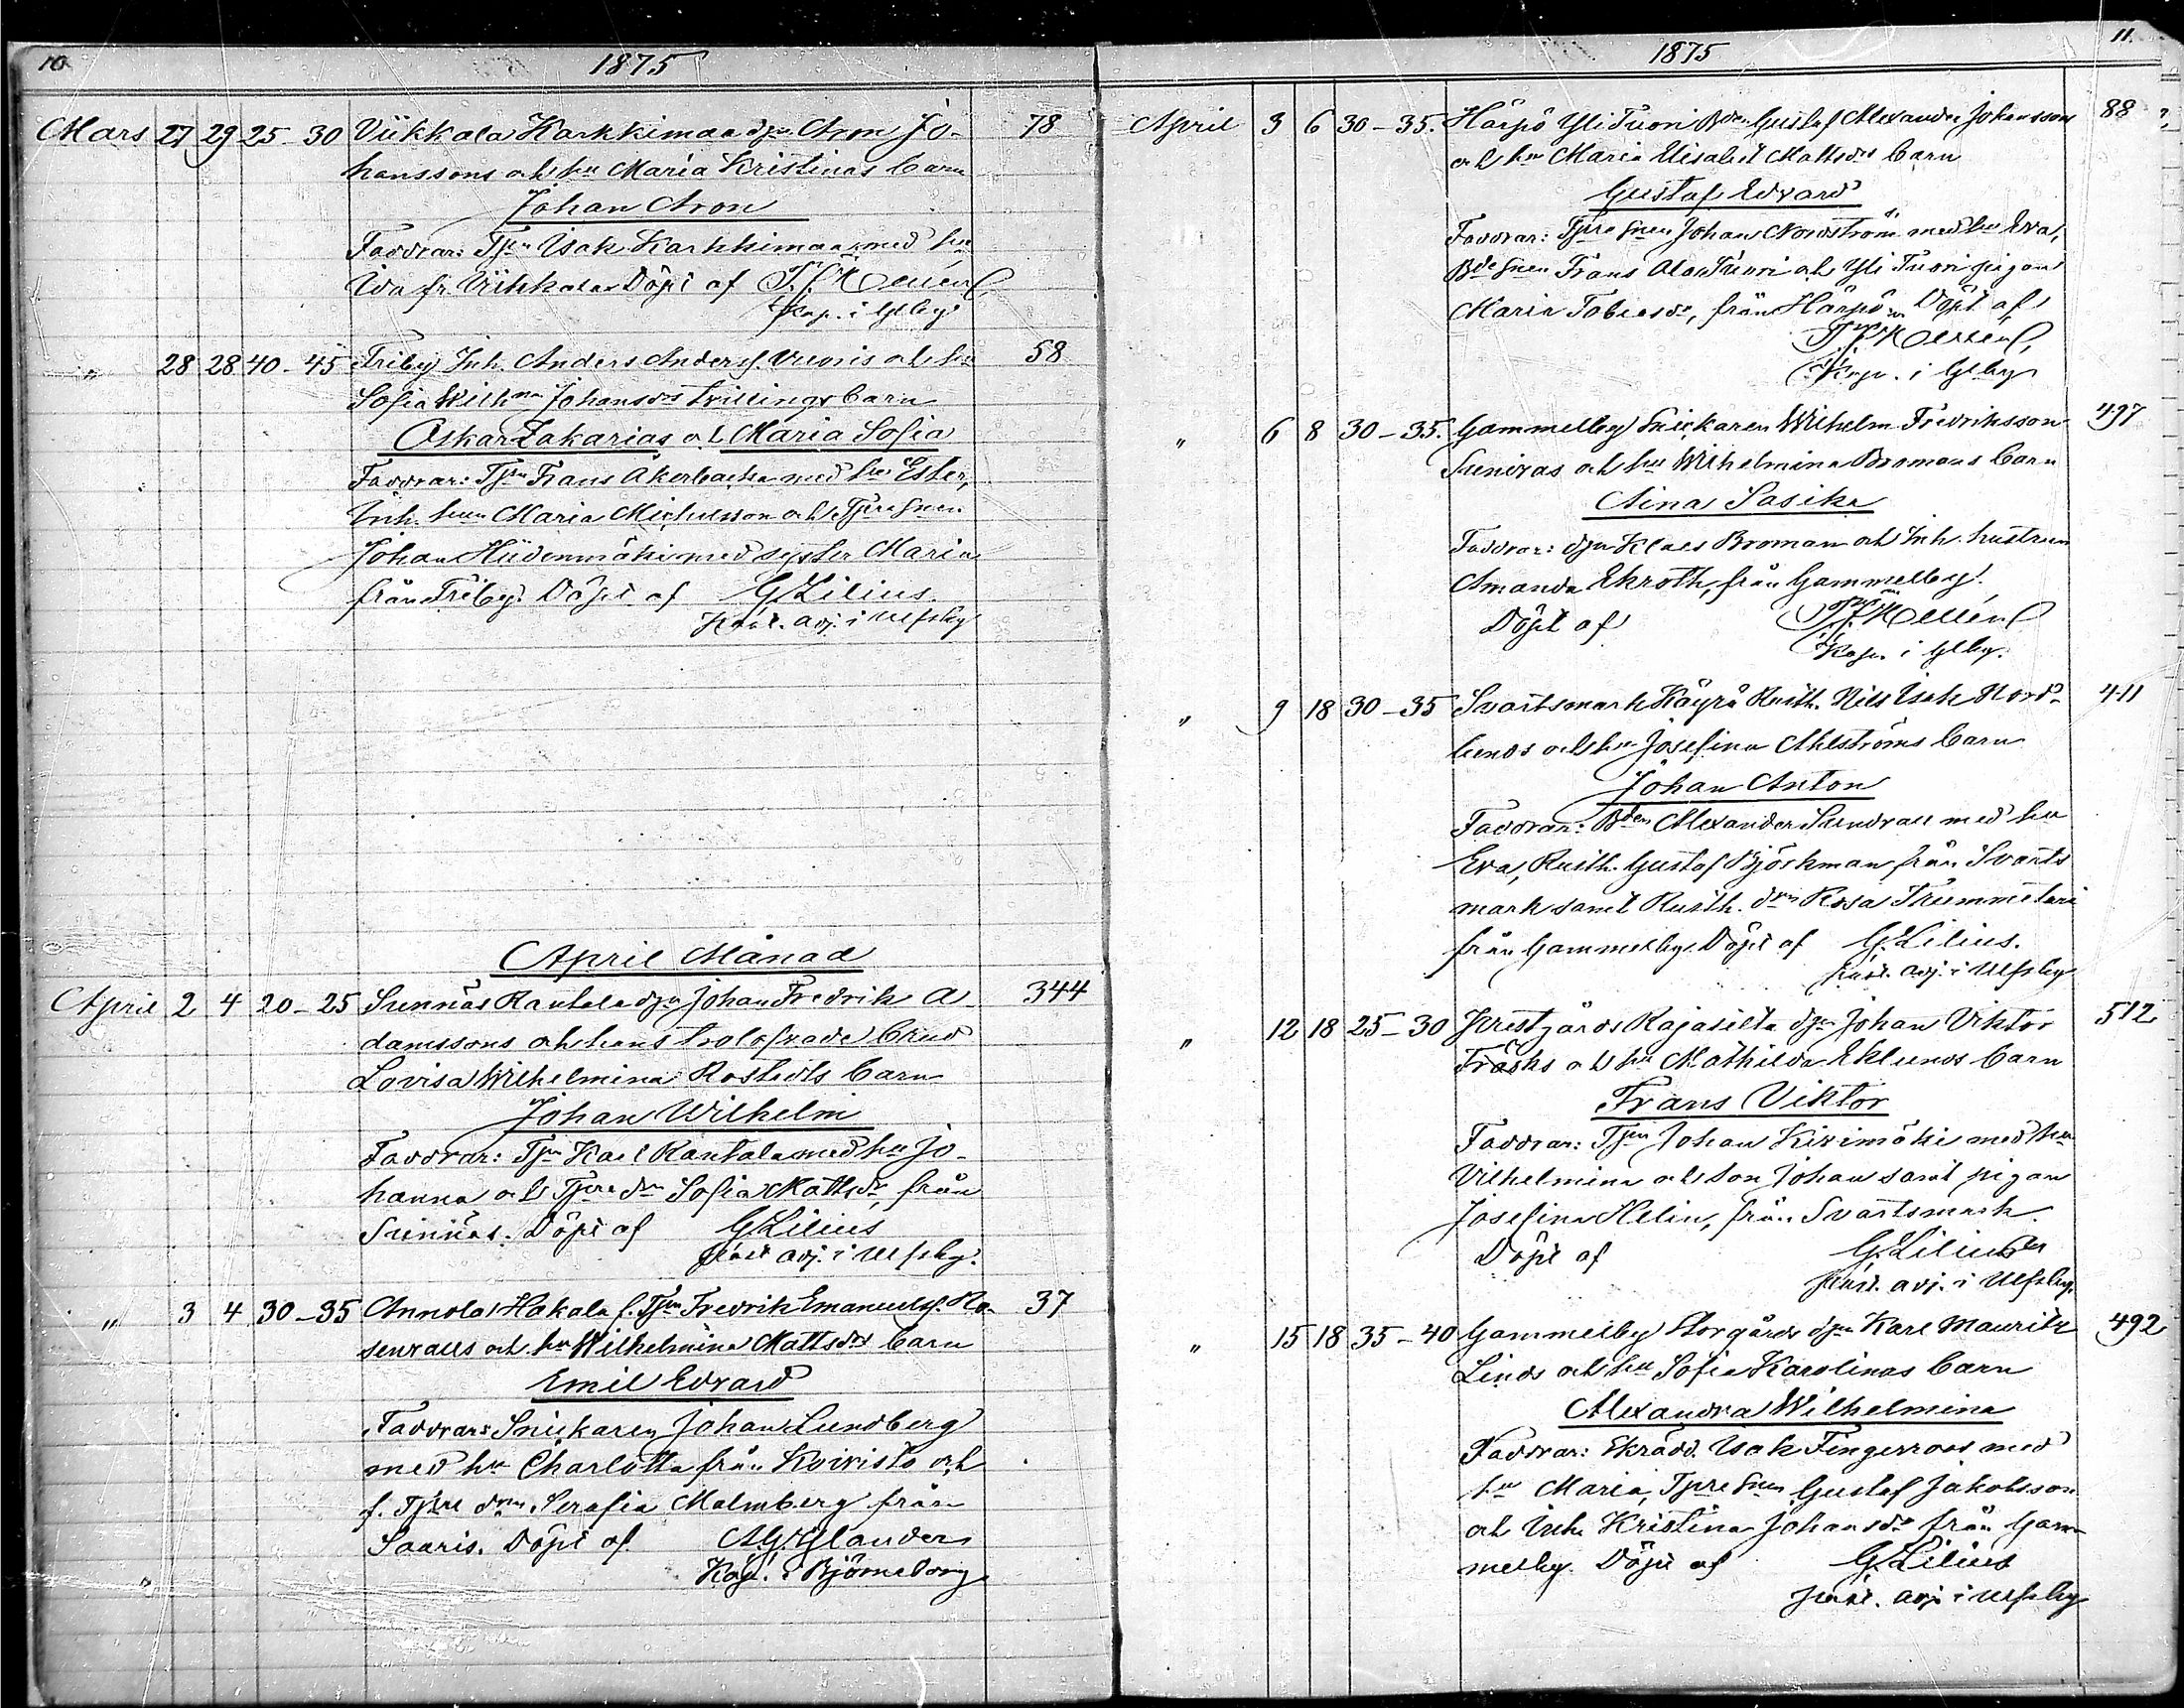 10
1875
Mars 27 29 25-30 Viikkala Karkkimaa dgn Aron Jo- 78
hanssons och hu Maria Kristinas barn
Johan Aron
Faddrar: Tjn Isak Karkkimaa med hu
Ida fr. Viikkala Döpt af
Kap. i Glby
" 28 28 40-45 Friby Inh. Anders Anderss. Vuoris och hu 58
Sofia Wilhma Johansdrs tvillingx barn
Oskar Zakarias och Maria Sofia
Faddrar: Tjn Frans Åkerbacka med hu Ester,
Inh. hun Maria Michelsson och Tjre snen
Johan Hiidenmäki med syster Maria
från Friby. Döpt af G Lilius.
past. adj. i Ulfsby
April Månad
April 2 4 20-25 Sunnäs Rantala dgn Johan Fredrik A- 344
damssons och hans trolofvade brud
Lovisa Wilhelmina Rostedts barn
Johan Wilhelm
Faddrar: Tjn Karl Rantala med hu Jo-
hanna och Tjre drn Sofia Mattsdr, från
Sunnäs. Döpt af G Lilius
past adj. i Ulfsby.
" 3 4 30-35 Annola Hakala f. Tjn Fredrik Emanuelss. Ro- 37
senvalls och hu Wilhelmina Mattsdrs barn
Emil Edvard
Faddrar: Snickaren Johan Lundberg
med hu Charlotta från Koivisto och
f. Tjre drn Serafia Malmberg från
Saaris. Döpt af A.G. Ylander
Kap. i Björneborg
"
11.
1875
April 3 6 30-35. Härpö Yli Tuori Bden Gustaf Alexander Johansson 88
och hu Maria Elisabet Mattsdrs barn
Gustaf Edvard
Faddrar: Tjre snen Johan Nordström med hu Eva,
Bde snen Frans Ala Tuori och Yli Tuori pigan
Maria Tobiasdr, från Härpö. Döpt af
Kap. i Glby
" 6 8 30-35. Gammelby Snickaren Wilhelm Fredriksson 497
Sunivas och hu Wilhelmina Bromans barn
Aina Sasika
Faddrar: dgn Klaes Broman och Inh. hustrun
Amanda Ekroth, från Gammelby.
Döpt af
Kap. i Glby.
" 9 18 30-35 Svartsmark Käyrä Rusth. Nils Isak Nord- 411
lunds och hu Josefina Ahlströms barn
Johan Anton
Faddrar: Bden Alexander Sundvall med hu
Eva, Rusth. Gustaf Björkman från Svarts
mark samt Rusth. drn Rosa Trummetari
från Gammelby. Döpt af G. Lilius.
past. adj. i Ulfsby
" 12 18 25-30 Kvistgärds Rajasilta dgn Johan Viktor 512
Träsks och hu Mathilda Eklunds barn
Frans Viktor
Faddrar: Tjn Johan Kivimäki med hu
Vilhelmina och son Johan samt pigan
Josefina Helin, från Svartsmark.
Döpt af G. Lilius
past. adj. i Ulfsby.
" 15 18 35-40 Gammelby Storgårds dgn Karl Mauritz 492
Linds och hu Sofia Karolinas barn
Alexandra Wilhelmina
Faddrar: Skrädd. Isak Fingerroos med
hu Maria, Tjre snen Gustaf Jakobsson
och Inh. Kristina Johansdr från Gam-
melby. Döpt af G. Lilius
past. adj. i Ulfsby